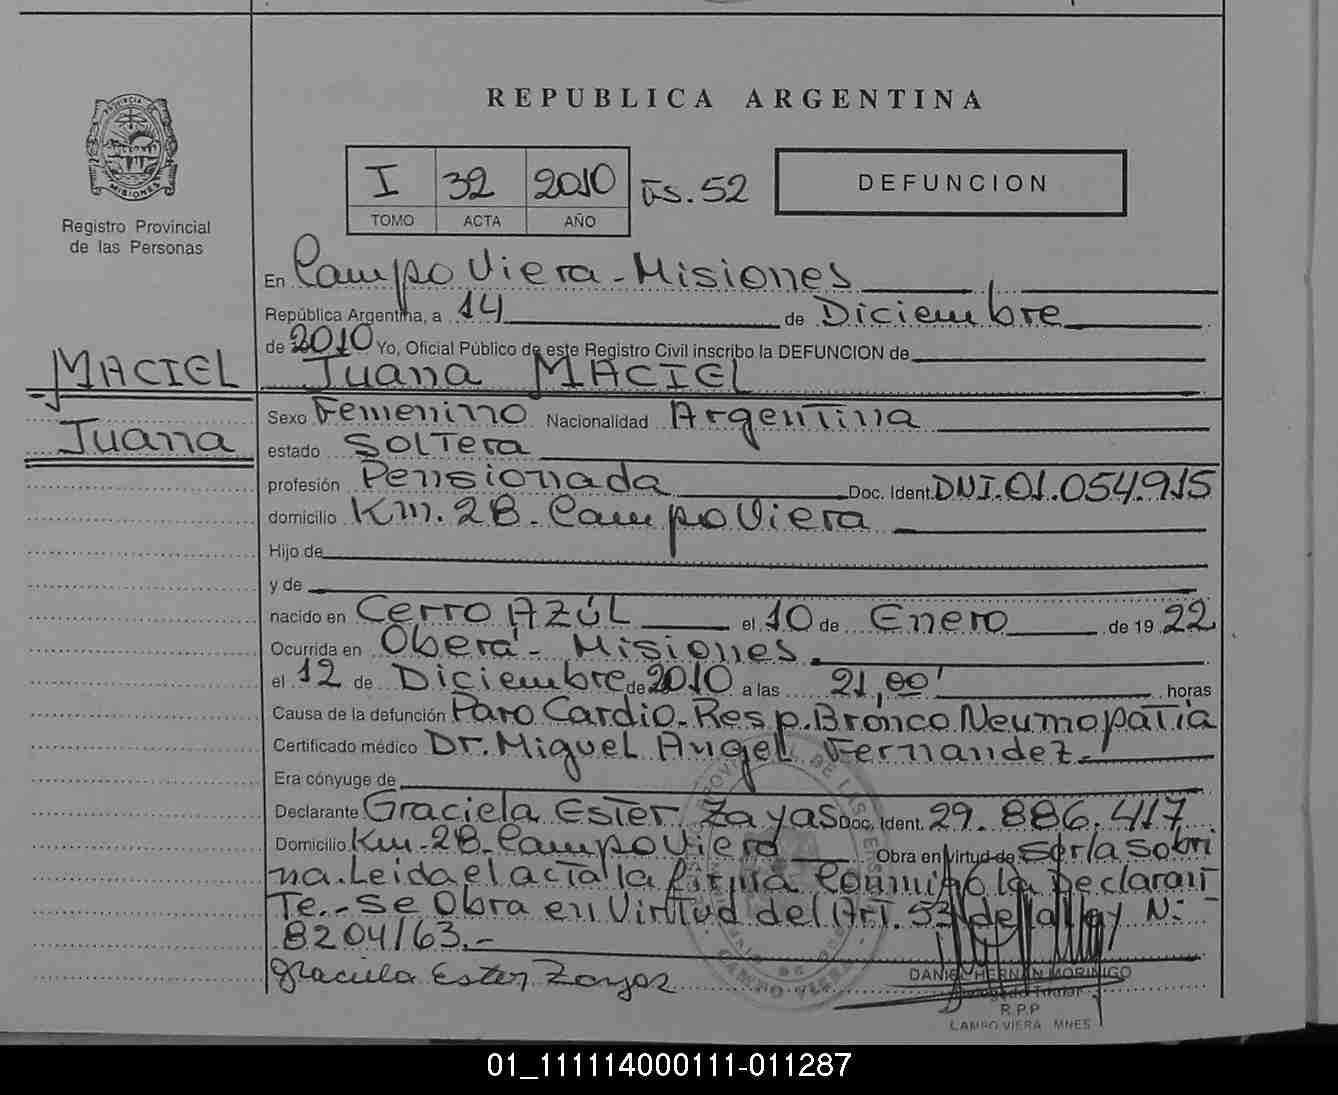 REPUBLICA ARGENTINA
I 32 2010 Fs. 52
TOMO ACTA AÑO
DEFUNCION
PROVINCIA DE MISIONES
Registro Provincial
de las Personas
MACIEL
Juana
En Campo Viera - Misiones
República Argentina, a 14 de Diciembre
de 2010 Yo, Oficial Público de este Registro Civil inscribo la DEFUNCION de
Juana MACIEL
Sexo Femenino Nacionalidad Argentina
estado Soltera
profesión Pensionada Doc. Ident. DNI. 01.054.915
domicilio Km. 28. Campo Viera
Hijo de
y de
nacido en Cerro Azúl el 10 de Enero de 19 22
Ocurrida en Oberá - Misiones
el 12 de Diciembre de 2010 a las 21,00' horas
Causa de la defunción Paro Cardio-Resp. Bronco Neumopatia
Certificado médico Dr. Miguel Angel Fernandez.-
Era cónyuge de
Declarante Graciela Ester Zayas Doc. Ident. 29.886.417
Domicilio Km-28-Campo Viera Obra en virtud de ser la sobri
na. Leida el acta la firma Conmigo la Declaran
te.- Se Obra en Virtud del Art. 53 de la ley N:
8204/63.-
Graciela Ester Zayas
DANIEL HERNAN MORINIGO
Delegado Titular
R.P.P
CAMPO VIERA MNES
01_111114000111-011287